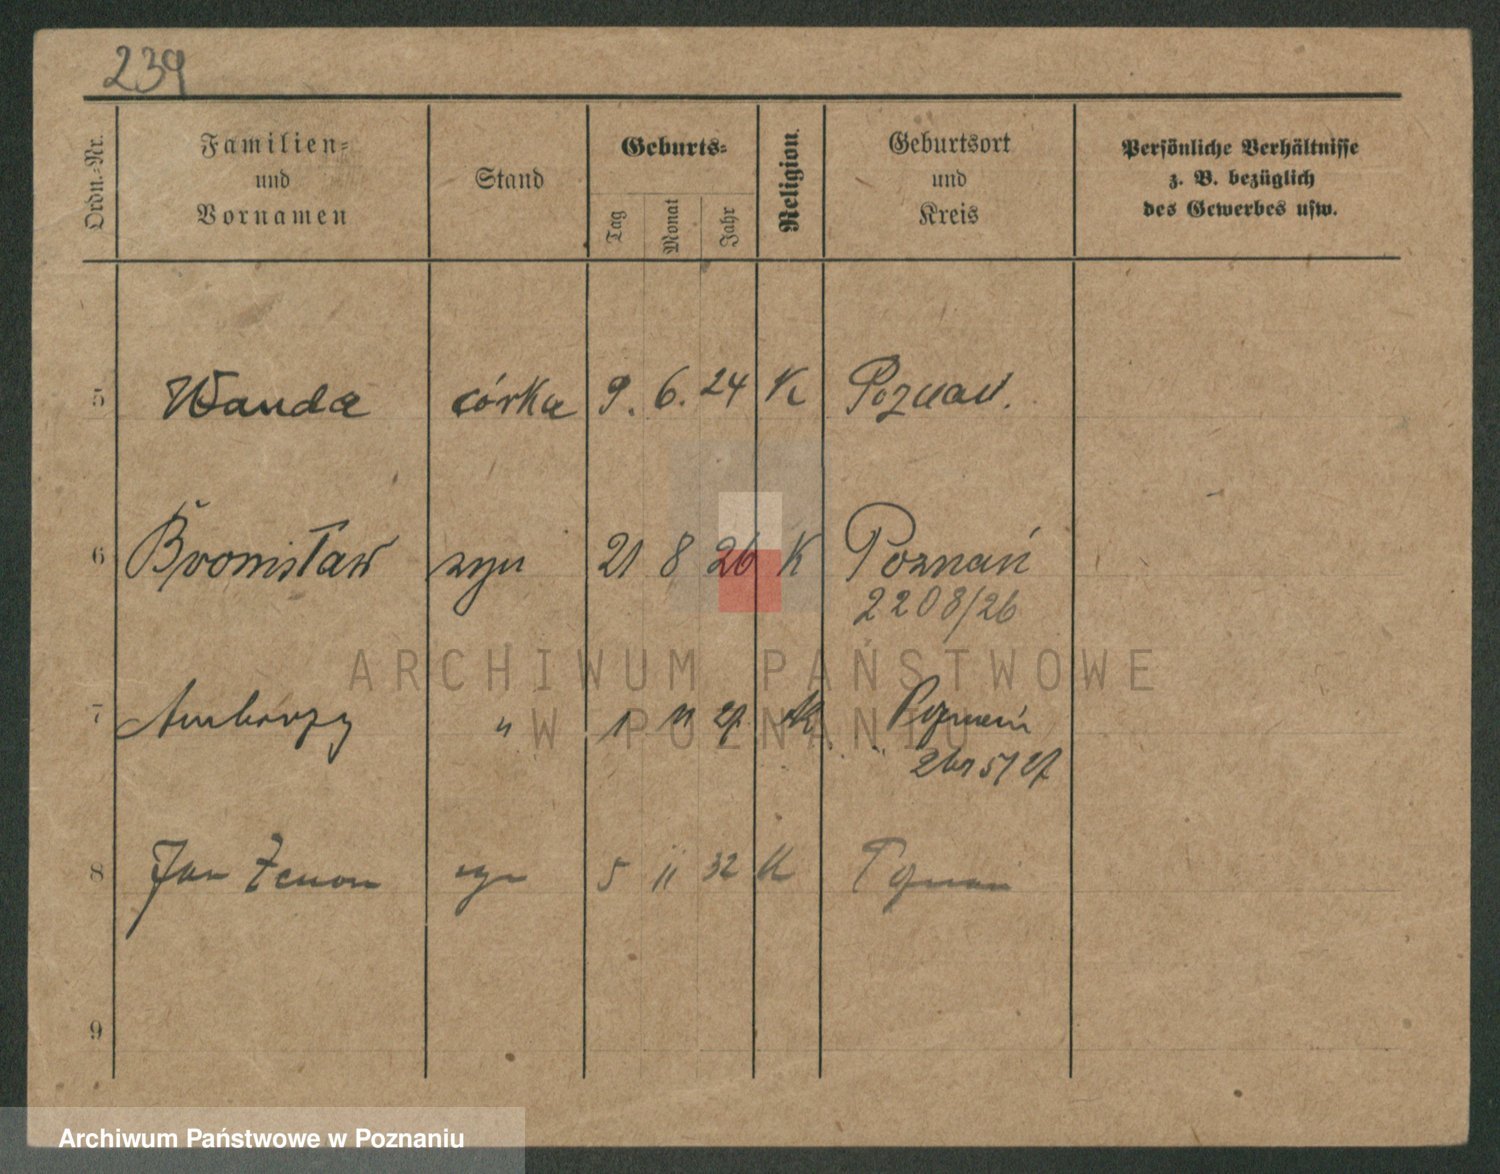 239
Ordn.-Nr.
Familien-
und
Vornamen
Stand
Geburts-
Tag
Monat
Jahr
Religion.
Geburtsort
und
Kreis
Persönliche Verhältnisse
z. B. bezüglich
des Gewerbes usw.
5 Wanda córka 9. 6. 24 K Poznań.
6 Bronisław syn 21 8 26 K Poznań
2208/26
7 Ambroży " 1 11 27 K Poznań
8 Jan Zenon syn 5 11 32 K Poznań
9
ARCHIWUM PAŃSTWOWE
W POZNANIU
Archiwum Państwowe w Poznaniu